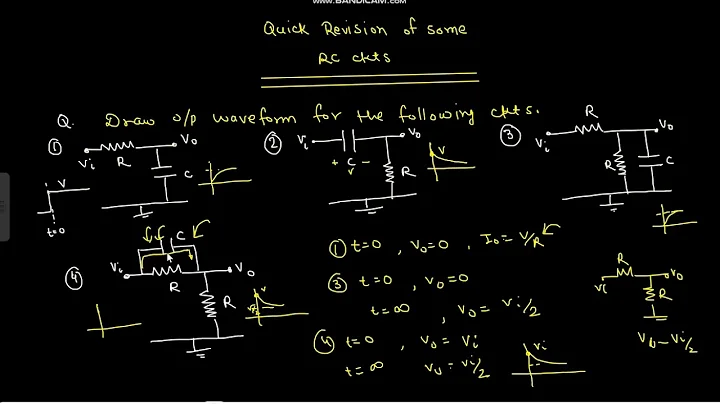 www.BANDICAM.com
Quick Revision of some
RC ckts
Q. Draw o/p waveform for the following ckts.
① Vi R Vo C
V
t=0
② Vi C + v - Vo R
V
③ Vi R Vo R C
④ Vi C R Vo R
V
① t=0 , Vo=0 , Io = V/R
③ t=0 , Vo=0
t=∞ , Vo = Vi/2
④ t=0 , Vo = Vi
t=∞ Vo = Vi/2
Vi
R
Vi Vo
R
Vo = Vi/2